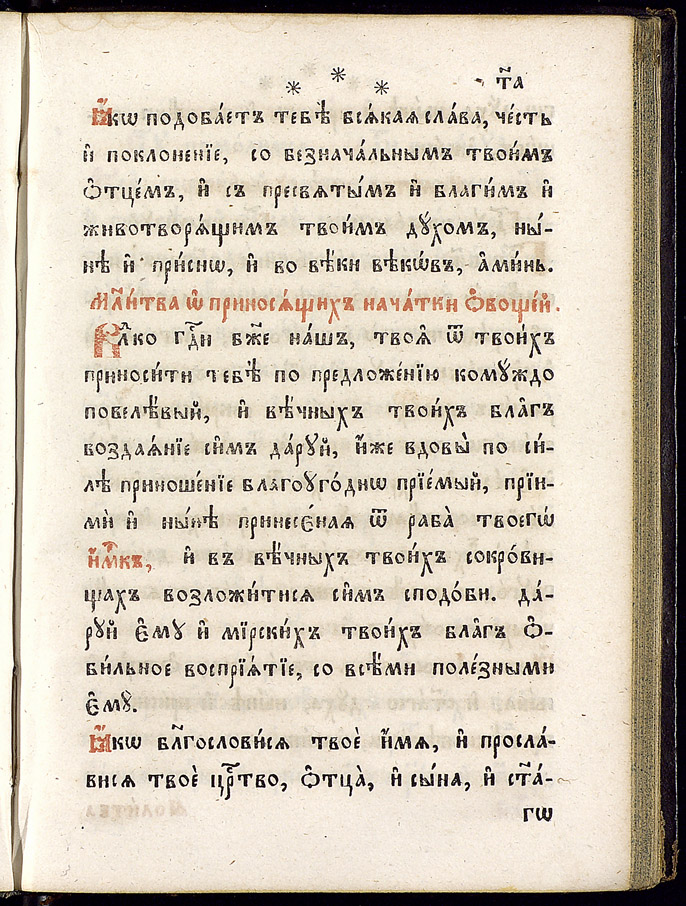 * * * т҃а
Ꙗ҆́кѡ подоба́етъ тебѣ̀ всѧ́каѧ сла́ва, че́сть
и҆ поклоне́нїе, со безнача́льнымъ твои́мъ
ѻ҆тце́мъ, и҆ съ пресвѧты́мъ и҆ благи́мъ и҆
животворѧ́щимъ твои́мъ дꙋ́хомъ, ны́-
нѣ и҆ при́снѡ, и҆ во вѣ́ки вѣкѡ́въ, а҆ми́нь.
Мл҃и́тва ѡ҆ приносѧ́щихъ нача́тки ѻ҆воще́й.
Влⷣко гдⷭ҇и бж҃е на́шъ, твоѧ̑ ѿ твои́хъ
приноси́ти тебѣ̀ по предложе́нїю комꙋ́ждо
повелѣ́вый, и҆ вѣ́чныхъ твои́хъ бла̑гъ
воздаѧ́нїе си̑мъ да́рꙋй, и҆́же вдовы̀ по си́-
лѣ приноше́нїе благоꙋго́днѡ прїе́мый, прїи-
мѝ и҆ ны́нѣ принесе́ннаѧ ѿ раба̀ твоегѡ̀
и҆́мⷬ҇къ, и҆ въ вѣ́чныхъ твои́хъ сокро́ви-
щахъ возложи́тисѧ си̑мъ сподо́би. да́-
рꙋй є҆мꙋ̀ и҆ мїрски́хъ твои́хъ бла̑гъ ѻ҆-
би́льное воспрїѧ́тїе, со всѣ́ми поле́зными
є҆мꙋ̀.
Ꙗ҆́кѡ бл҃гослови́сѧ твоѐ и҆́мѧ, и҆ просла́-
висѧ твоѐ црⷭ҇тво, ѻ҆тца̀, и҆ сы́на, и҆ ст҃а́-
гѡ